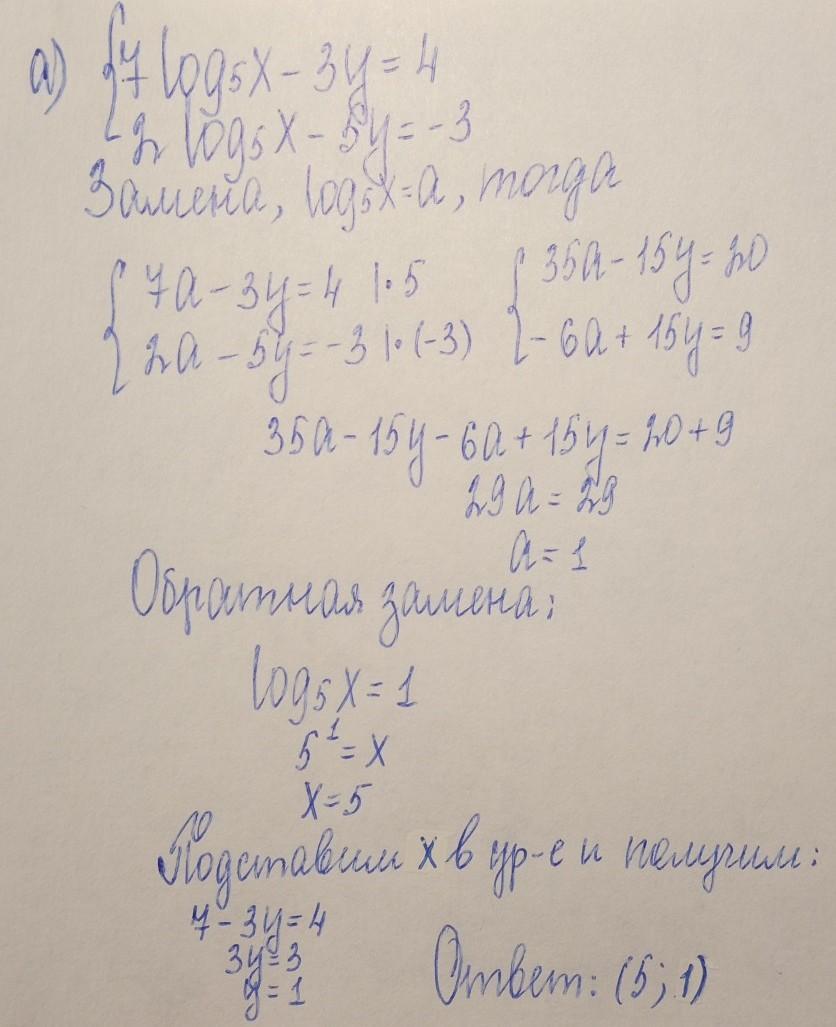 а) { 7 log₅x - 3y = 4
2 log₅x - 5y = -3
Замена, log₅x = a, тогда
{ 7a - 3y = 4 |· 5 { 35a - 15y = 20
2a - 5y = -3 |· (-3) - 6a + 15y = 9
35a - 15y - 6a + 15y = 20 + 9
29a = 29
a = 1
Обратная замена:
log₅x = 1
5¹ = x
x = 5
Подставим x в ур-е и получим:
7 - 3y = 4
3y = 3
y = 1
Ответ: (5; 1)